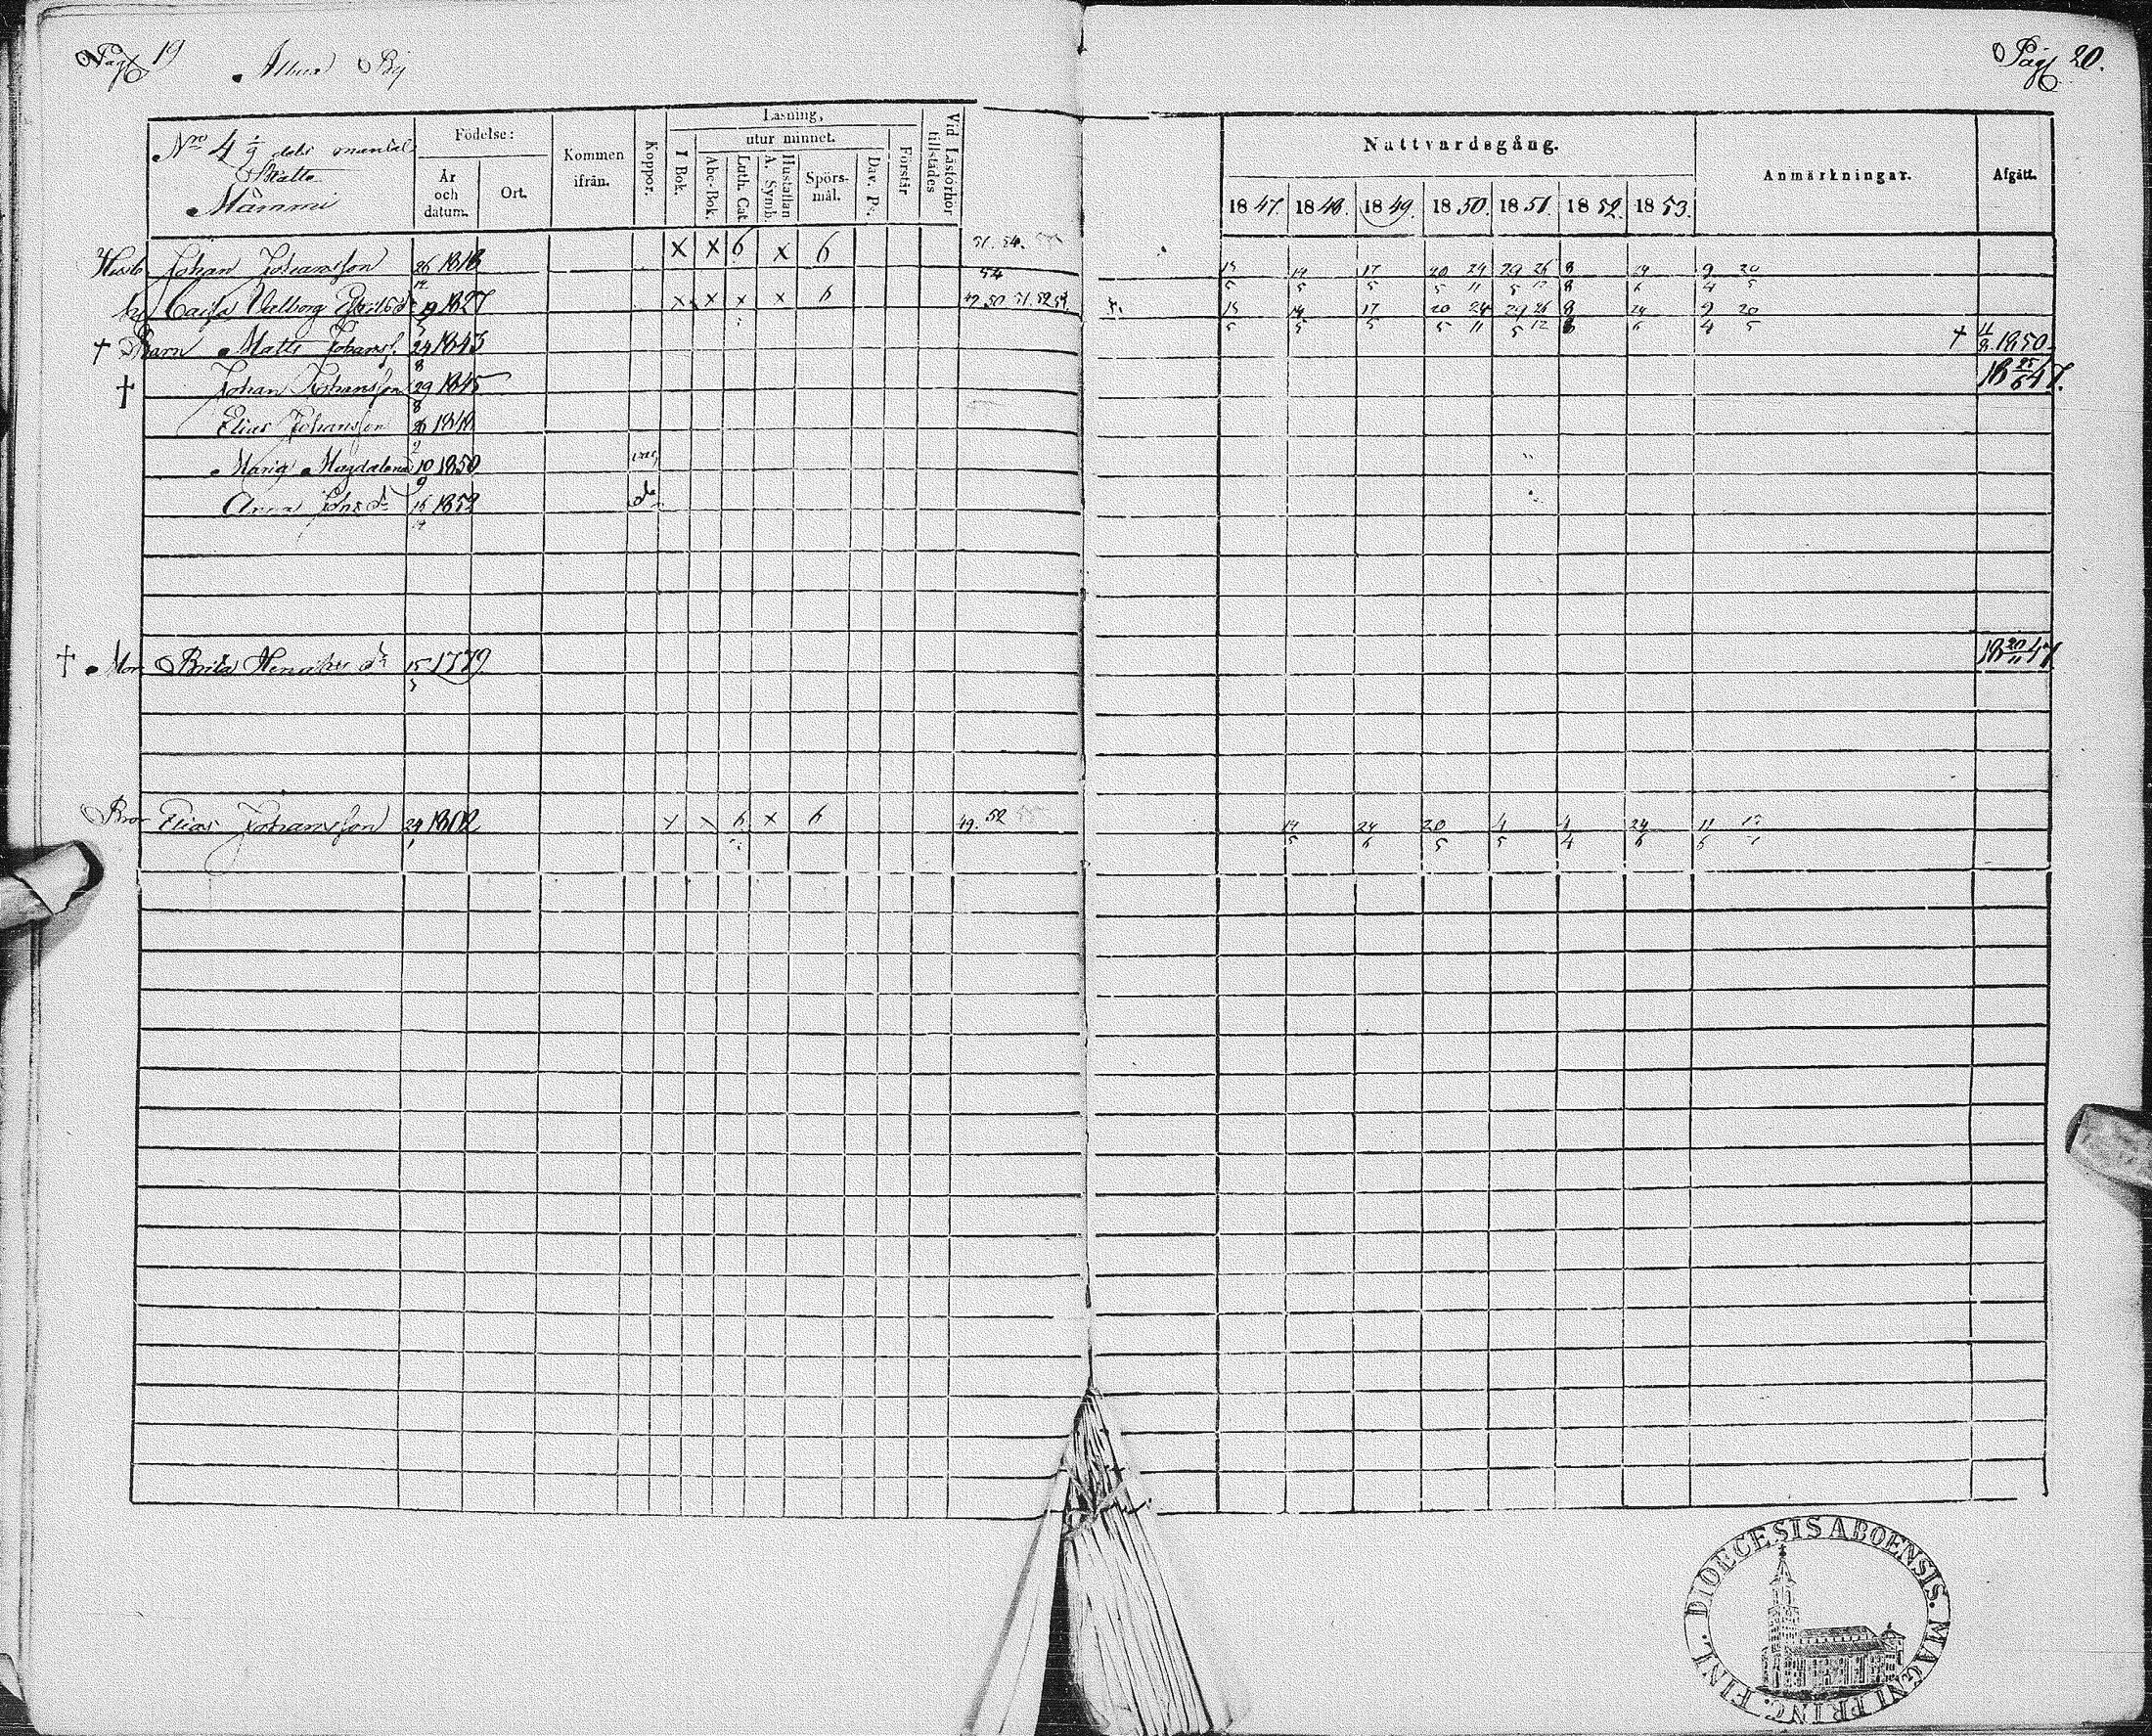 Pag 19
By
Pag 20.
No 4 1/9 dels mantal
Skatte
Mämmi
Födelse:
År och datum.
Ort.
Kommen ifrån.
Koppor.
Läsning,
I Bok.
utur minnet.
Abc-Bok.
Luth. Cat.
Hustaflan A. Symb.
Spörsmål.
Dav. Ps.
Förstår
Vid Läsförhör tillstädes
Nattvardsgång.
1847. 1848. 1849. 1850. 1851. 1852. 1853.
Anmärkningar.
Afgått.
Johan Johansson 26/12 1818 X X 6 X 6 51. 54.
15/5 14/5 17/5 20/5 24/11 29/5 26/12 8/8 24/6 9/4 20/5
Caisa Valborg 1827 x x x x 6 49. 50 51. 52 54
15/5 14/5 17/5 20/5 24/11 29/5 26/12 8/8 24/6 9/4 20/5
† Barn Matts Johanss. 24/8 1843 † 4/8 1850
† Johan Johansson 29/8 1845 18 25/6 47.
Elias Johansson 26/2 1848
Maria Magdalena 10/9 1850 vac.
Anna Johsdr 16/12 1852 do
† Mor Brita Henriksdr 15/5 1779 18 20/11 47
Bror Elias Johansson 24/1 1802 x x 6 x 6 49. 52
14/5 24/6 20/5 4/5 4/4 24/6 11/6
DIOECESIS ABOENSIS. MAGNI PRINC. FINL.